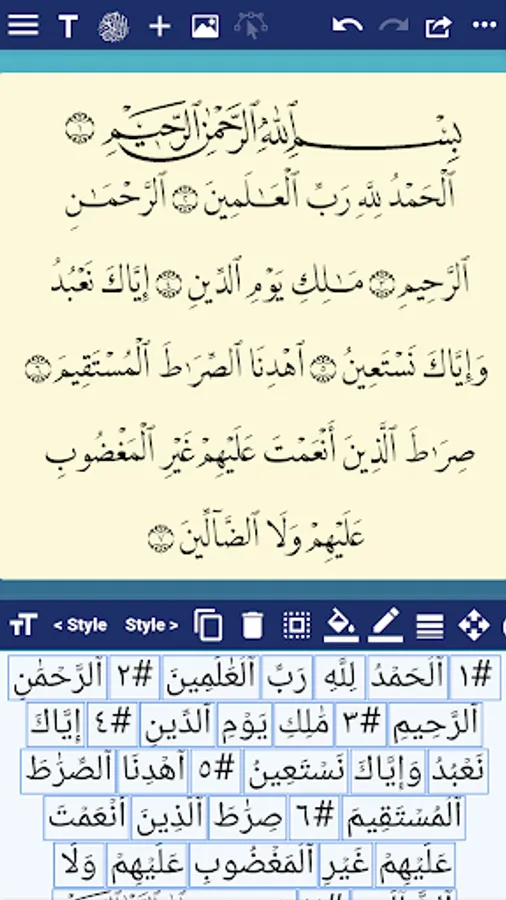 T
بِسْمِ ٱللَّهِ ٱلرَّحْمَٰنِ ٱلرَّحِيمِ ١
ٱلْحَمْدُ لِلَّهِ رَبِّ ٱلْعَـٰلَمِينَ ٢ ٱلرَّحْمَـٰنِ
ٱلرَّحِيمِ ٣ مَـٰلِكِ يَوْمِ ٱلدِّينِ ٤ إِيَّاكَ نَعْبُدُ
وَإِيَّاكَ نَسْتَعِينُ ٥ ٱهْدِنَا ٱلصِّرَٰطَ ٱلْمُسْتَقِيمَ ٦
صِرَٰطَ ٱلَّذِينَ أَنْعَمْتَ عَلَيْهِمْ غَيْرِ ٱلْمَغْضُوبِ
عَلَيْهِمْ وَلَا ٱلضَّآلِّينَ ٧
TT < Style Style >
#١ ٱلْحَمْدُ لِلَّهِ رَبِّ ٱلْعَٰلَمِينَ #٢ ٱلرَّحْمَٰنِ
ٱلرَّحِيمِ #٣ مَٰلِكِ يَوْمِ ٱلدِّينِ #٤ إِيَّاكَ
نَعْبُدُ وَإِيَّاكَ نَسْتَعِينُ #٥ ٱهْدِنَا ٱلصِّرَٰطَ
ٱلْمُسْتَقِيمَ #٦ صِرَٰطَ ٱلَّذِينَ أَنْعَمْتَ
عَلَيْهِمْ غَيْرِ ٱلْمَغْضُوبِ عَلَيْهِمْ وَلَا